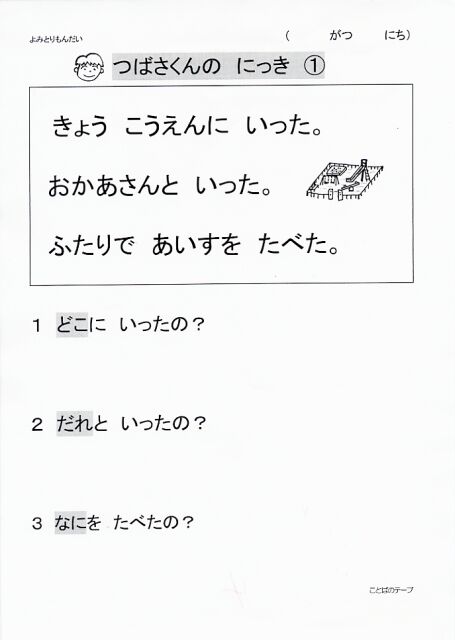 よみとりもんだい （　　がつ　　にち）
つばさくんの にっき ①
きょう こうえんに いった。
おかあさんと いった。
ふたりで あいすを たべた。
1 どこに いったの？
2 だれと いったの？
3 なにを たべたの？
ことばのテープ